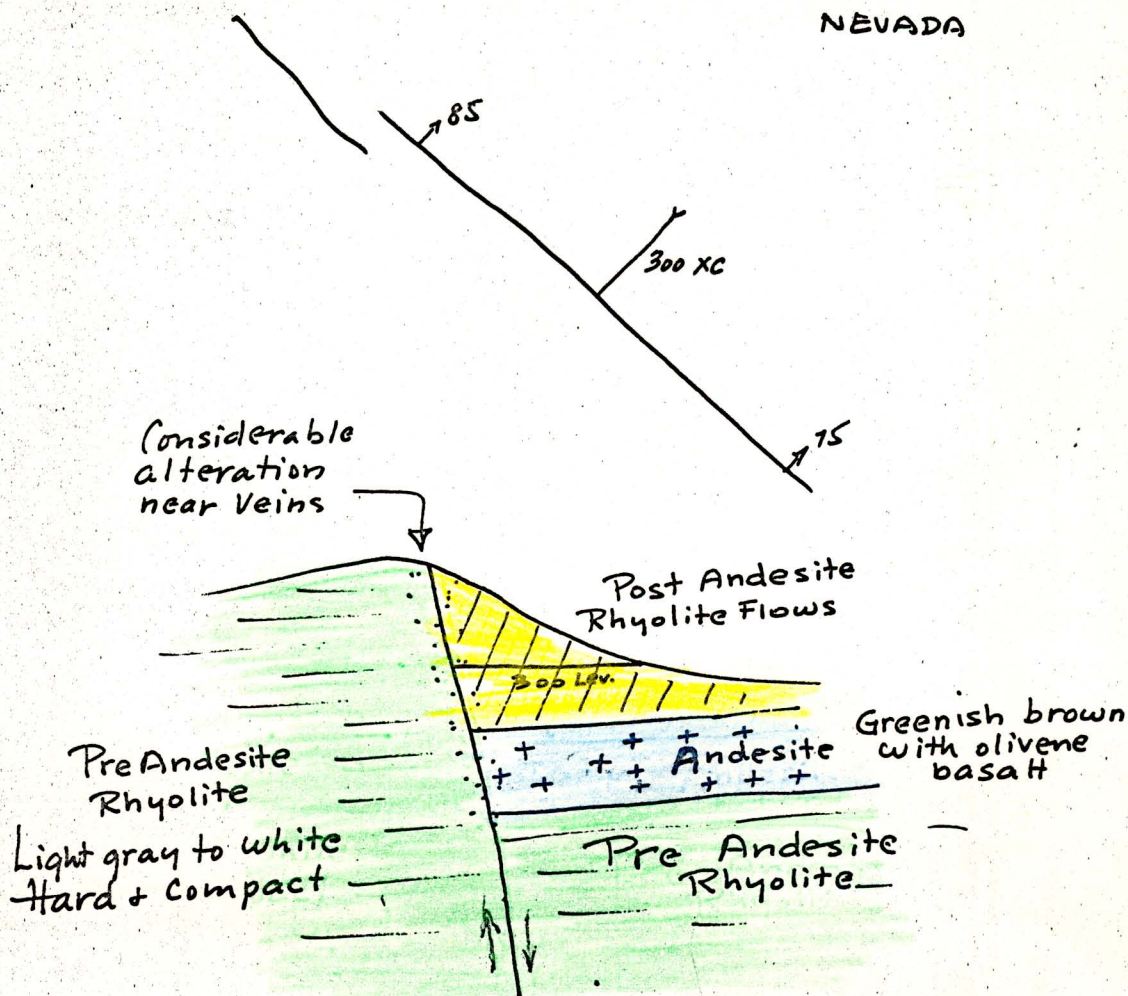 NEVADA
85
300 XC
75
Considerable
alteration
near Veins
Post Andesite
Rhyolite Flows
300 Lev.
Andesite
Greenish brown
with olivene
basalt
Pre Andesite
Rhyolite
Light gray to white
Hard & Compact
Pre Andesite
Rhyolite